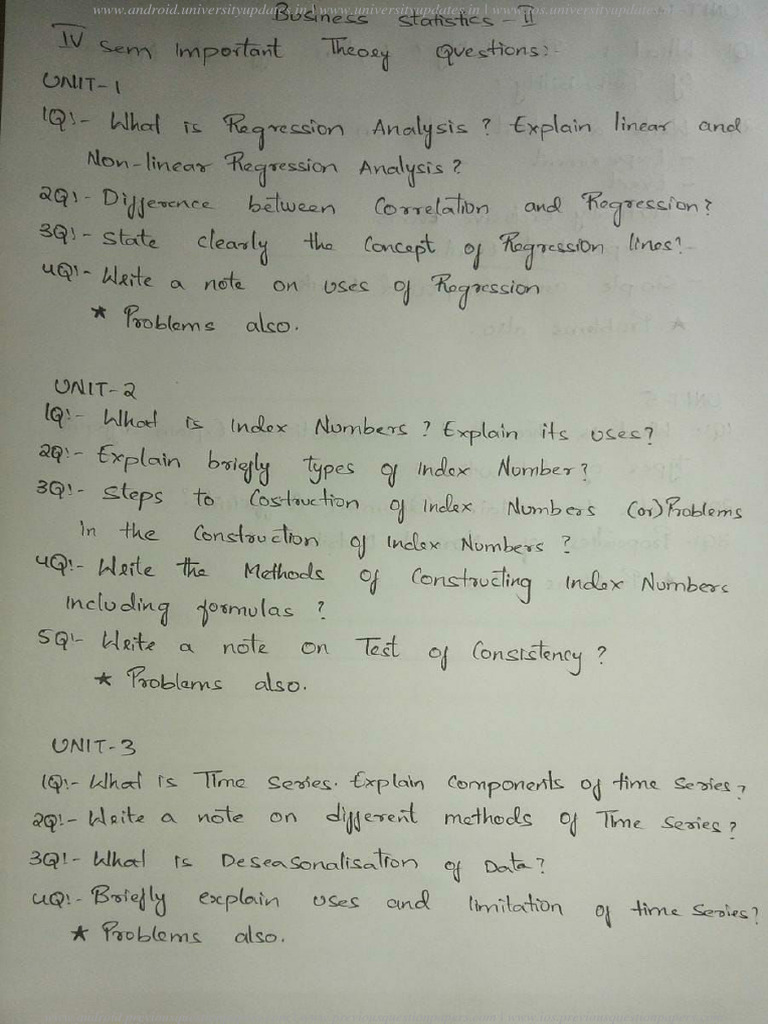 www.android.universityupdates.in | www.universityupdates.in | www.ios.universityupdates.in
Business Statistics - II
IV Sem Important Theory Questions:-
UNIT-1
1Q:- What is Regression Analysis? Explain linear and
Non-linear Regression Analysis?
2Q:- Difference between Correlation and Regression?
3Q:- State clearly the Concept of Regression lines?
4Q:- Write a note on uses of Regression
* Problems also.
UNIT-2
1Q:- What is Index Numbers? Explain its uses?
2Q:- Explain briefly types of Index Number?
3Q:- Steps to Costruction of Index Numbers (or) Problems
In the Construction of Index Numbers?
4Q:- Write the Methods of Constructing Index Numbers
including formulas?
5Q:- Write a note on Test of Consistency?
* Problems also.
UNIT-3
1Q:- What is Time Series. Explain Components of time Series?
2Q:- Write a note on different methods of Time Series?
3Q:- What is Deseasonalisation of Data?
4Q:- Briefly explain uses and limitation of time Series?
* Problems also.